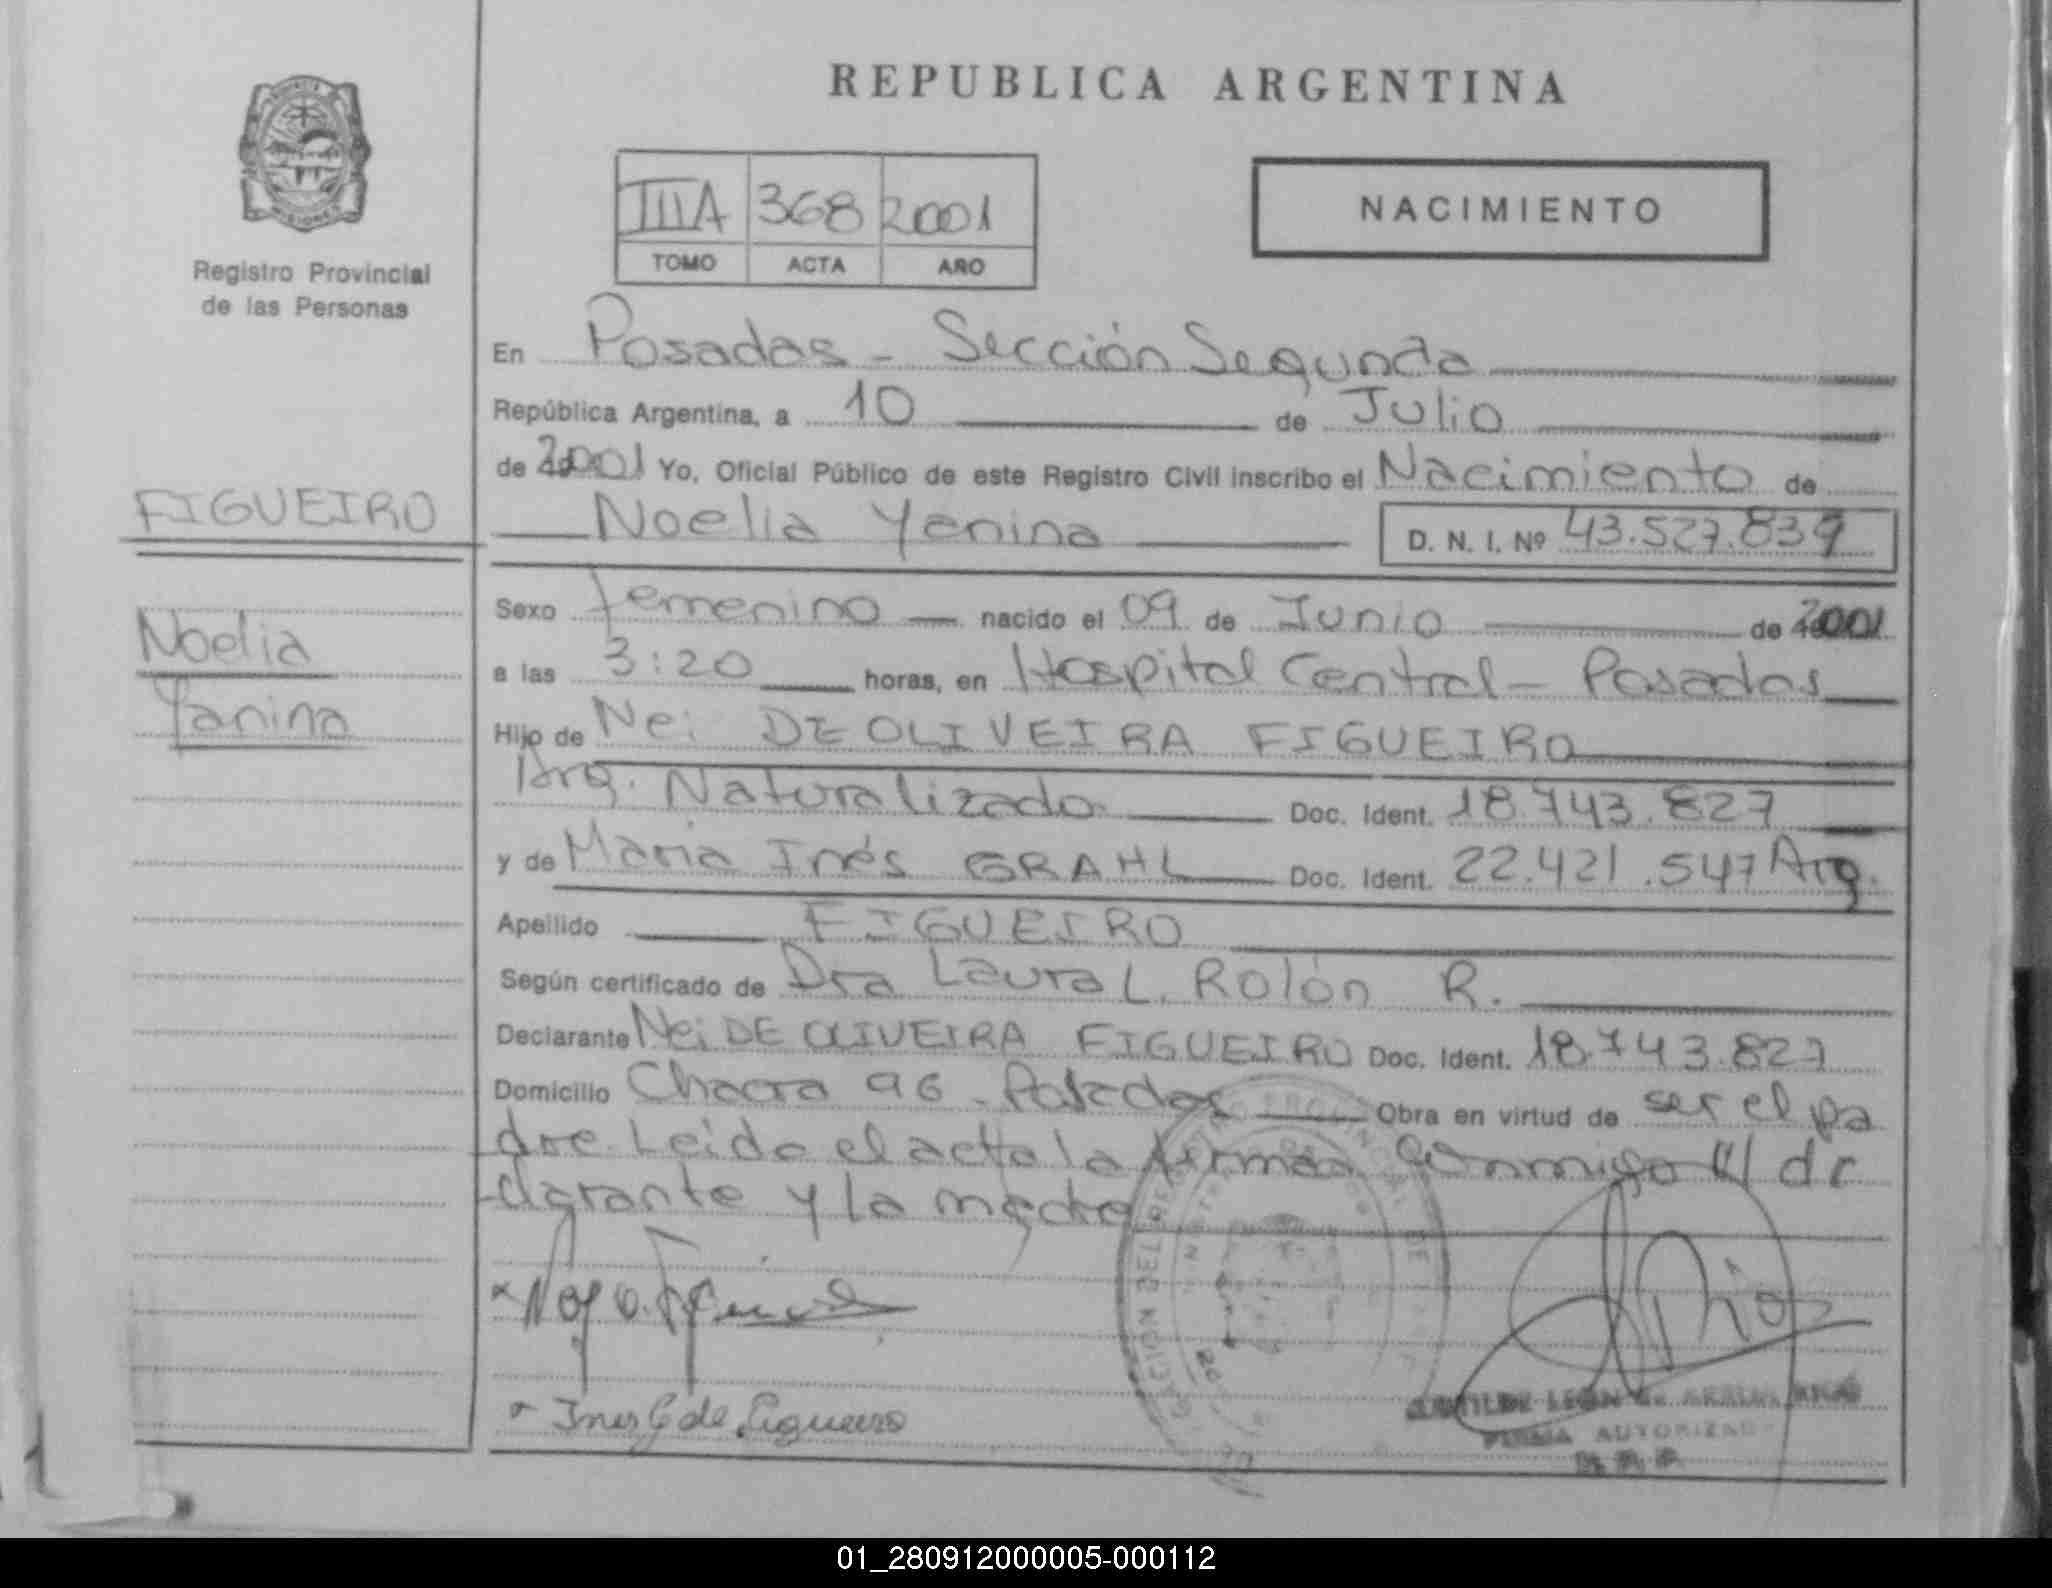 REPUBLICA ARGENTINA
MISIONES
Registro Provincial
de las Personas
IIIA 368 2001
TOMO ACTA AÑO
NACIMIENTO
En Posadas - Sección Segunda
República Argentina, a 10 de Julio
de 2001 Yo, Oficial Público de este Registro Civil inscribo el Nacimiento de
FIGUEIRO
Noelia Yenina D. N. I. Nº 43.527.839
Sexo femenino nacido el 09 de Junio de 2001
Noelia
Yanina
a las 3:20 horas, en Hospital Central - Posadas
Hijo de Nei DE OLIVEIRA FIGUEIRO
Arg. Naturalizado Doc. Ident. 18.743.827
y de Maria Inés GRAHL Doc. Ident. 22.421.547 Arg.
Apellido FIGUEIRO
Según certificado de Dra Laura L. Rolón R.
Declarante Nei DE OLIVEIRA FIGUEIRO Doc. Ident. 18.743.827
Domicilio Chacra 96 - Posadas Obra en virtud de ser el pa
dre. Leido el acta la firman conmigo el de
clarante y la madre
Ines G de Figueiro
FIRMA AUTORIZADA
01_280912000005-000112